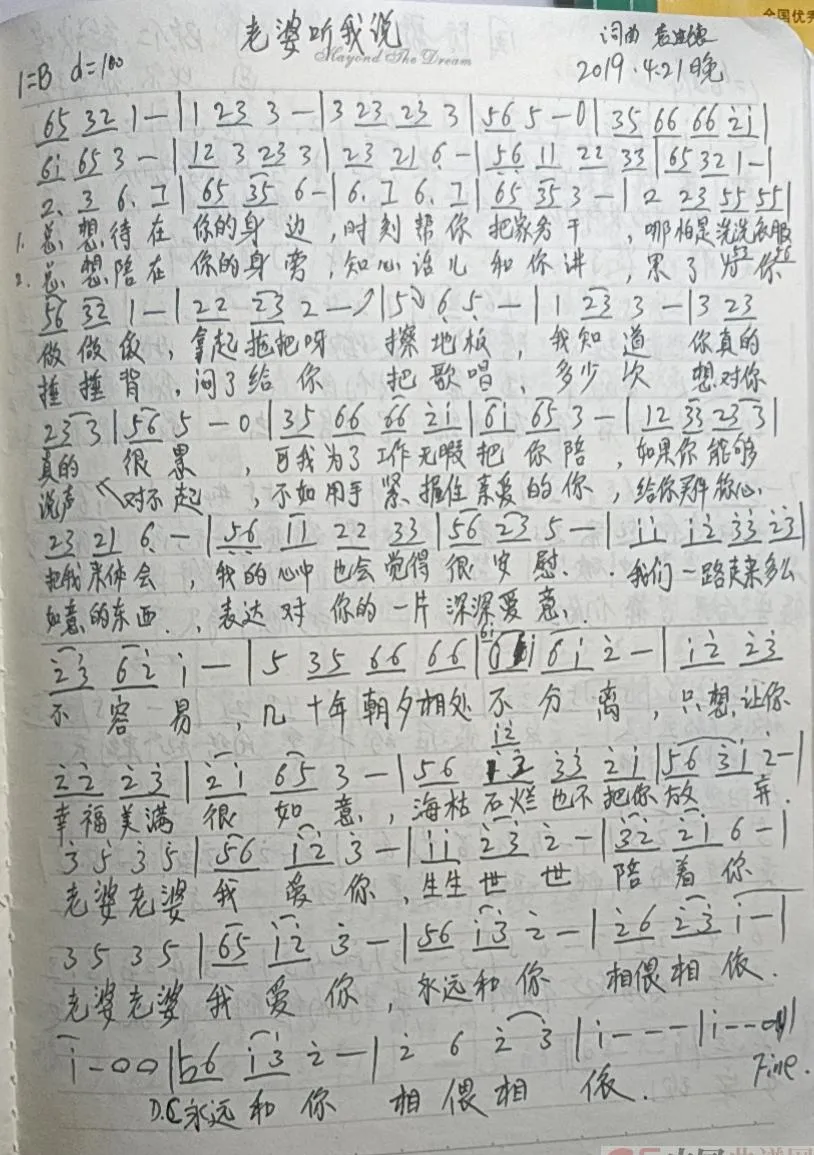 全国优秀
老婆听我说
Mayond The Dream
词曲
1=B d=100
2019.4.21晚
65 32 1 - | 1 23 3 - | 3 23 23 3 | 56 5 - 0 | 35 66 66 2̇1̇ |
61̇ 65 3 - | 12 3 23 3 | 23 21 6̣ - | 5̣6̣ 11 22 33 | 65 32 1 - |
2. 3 6. | 65 35 6 - | 6. 6. | 65 35 3 - | 2 23 55 55 |
1. 总想待在 你的身边,时刻帮你 把家务干 ,哪怕是洗洗衣服
2. 总想陪在 你的身旁,知心话儿 和你讲 ,累了为你
56 32 1 - | 22 23 2 - | 5 6̣ 5̣ - | 1 23 3 - | 3 23
做做饭,拿起拖把呀 擦地板,我知道 你真的
捶捶背,闷了给你 把歌唱,多少次 想对你
23 3 | 56 5 - 0 | 35 66 66 2̇1̇ | 61̇ 65 3 - | 12 33 23 3 |
真的 很累 ,可我为了工作无暇把你陪,如果你能够
说声 对不起 ,不如用手紧握住亲爱的你,给你买件称心
23 21 6̣ - | 5̣6̣ 11 22 33 | 56 23 5 - | 1̇1̇ 1̇2̇ 3̇3̇ 2̇3̇ |
把我来体会 ,我的心中也会觉得很安慰. 我们一路走来多么
如意的东西. ,表达对你的一片深深爱意.
2̇3̇ 62̇ 1̇ - | 5 35 66 66 | 61̇ 61̇ 2̇ - | 1̇2̇ 2̇3̇
不容易 ,几十年朝夕相处不分离 ,只想让你
2̇2̇ 2̇3̇ | 2̇1̇ 65 3 - | 56 1̇2̇ 3̇3̇ 2̇1̇ | 56 3̇1̇ 2̇ - |
幸福美满 很如意,海枯石烂也不把你放弃.
3̇ 5 3̇ 5 | 56 1̇2̇ 3̇ - | 1̇1̇ 2̇3̇ 2̇ - | 3̇2̇ 2̇1̇ 6 - |
老婆老婆 我爱你,生生世世 陪着你
3 5 3 5 | 65 1̇2̇ 3̇ - | 56 1̇3̇ 2̇ - | 2̇6 2̇3̇ 1̇ - |
老婆老婆 我爱你,永远和你 相偎相依.
1̇ - 0 0 | 56 1̇3̇ 2̇ - | 2̇ 6 2̇ 3̇ | 1̇ - - - | 1̇ - - 0 |
D.C 永远和你 相偎相依. Fine.